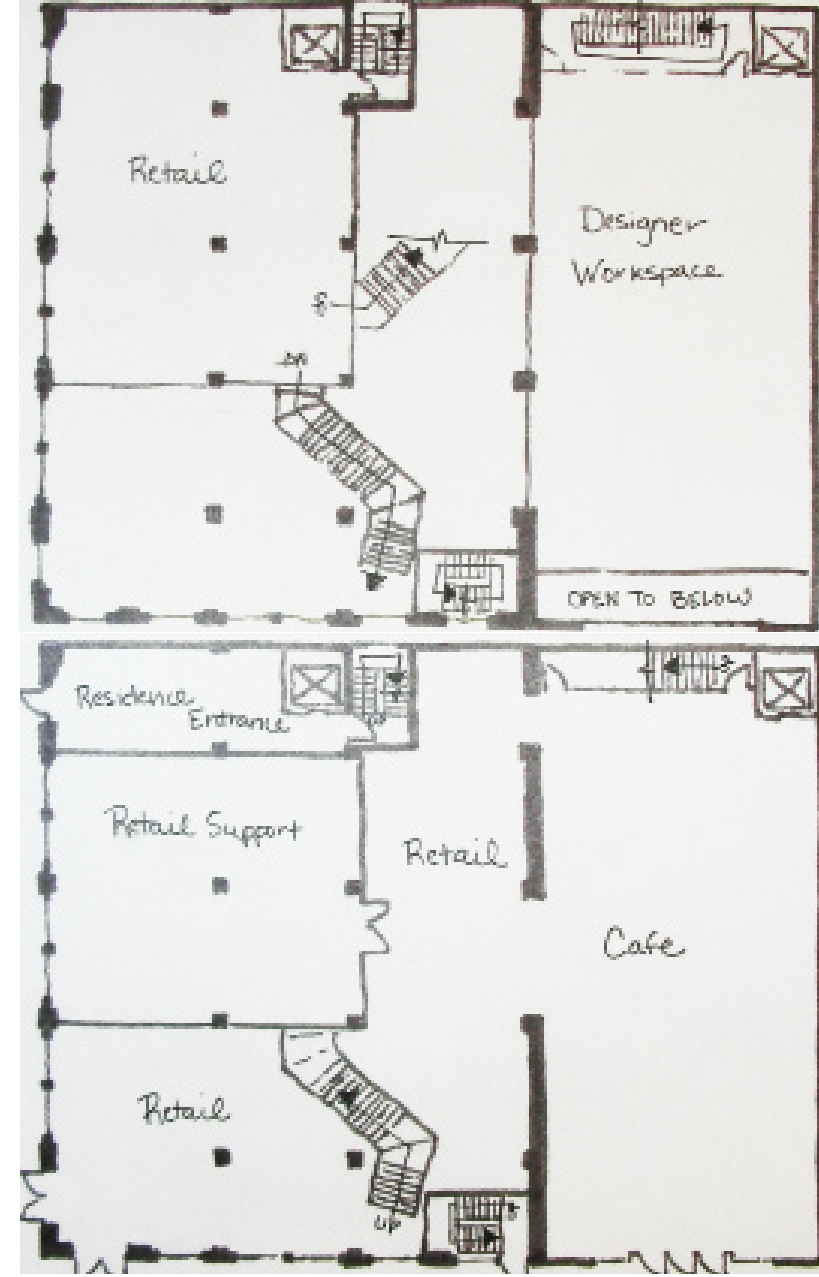 Retail
Designer
Workspace
DN
OPEN TO BELOW
Residence
Entrance
Retail Support
Retail
Cafe
Retail
UP